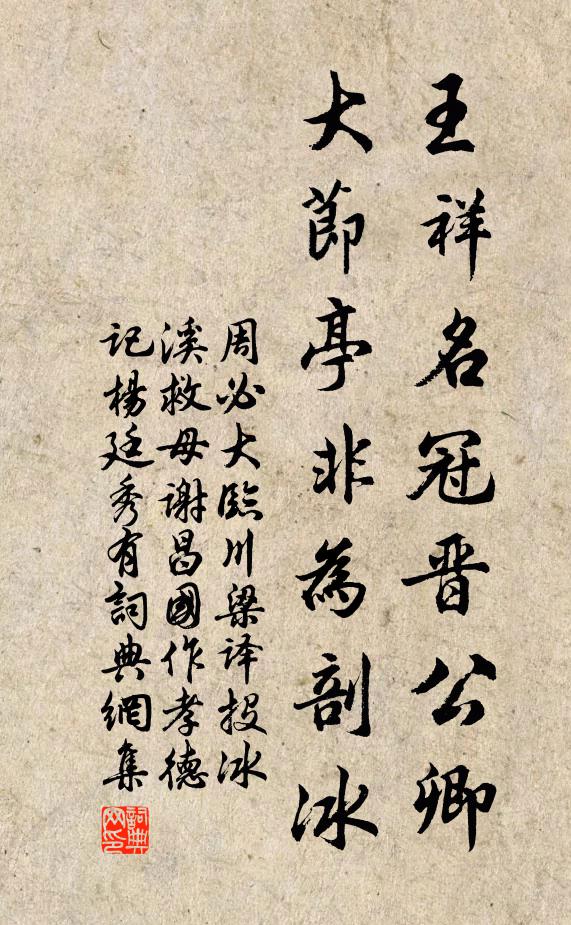 王祥名冠晋公卿
大節亭非為剖冰
周必大臨川梁译投冰
溪救母谢昌國作孝德
记楊廷秀有詞典網集
詞典
网印